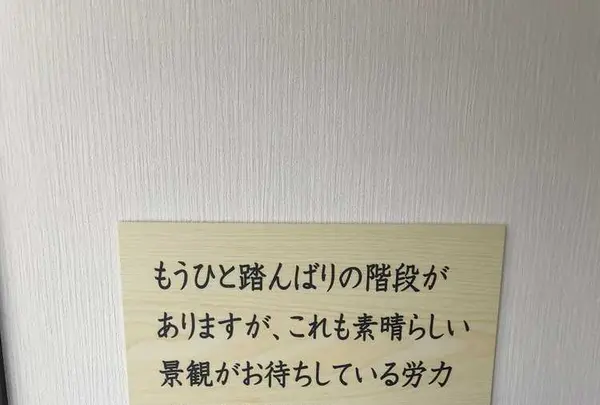 もうひと踏んばりの階段が
ありますが、これも素晴らしい
景観がお待ちしている労力